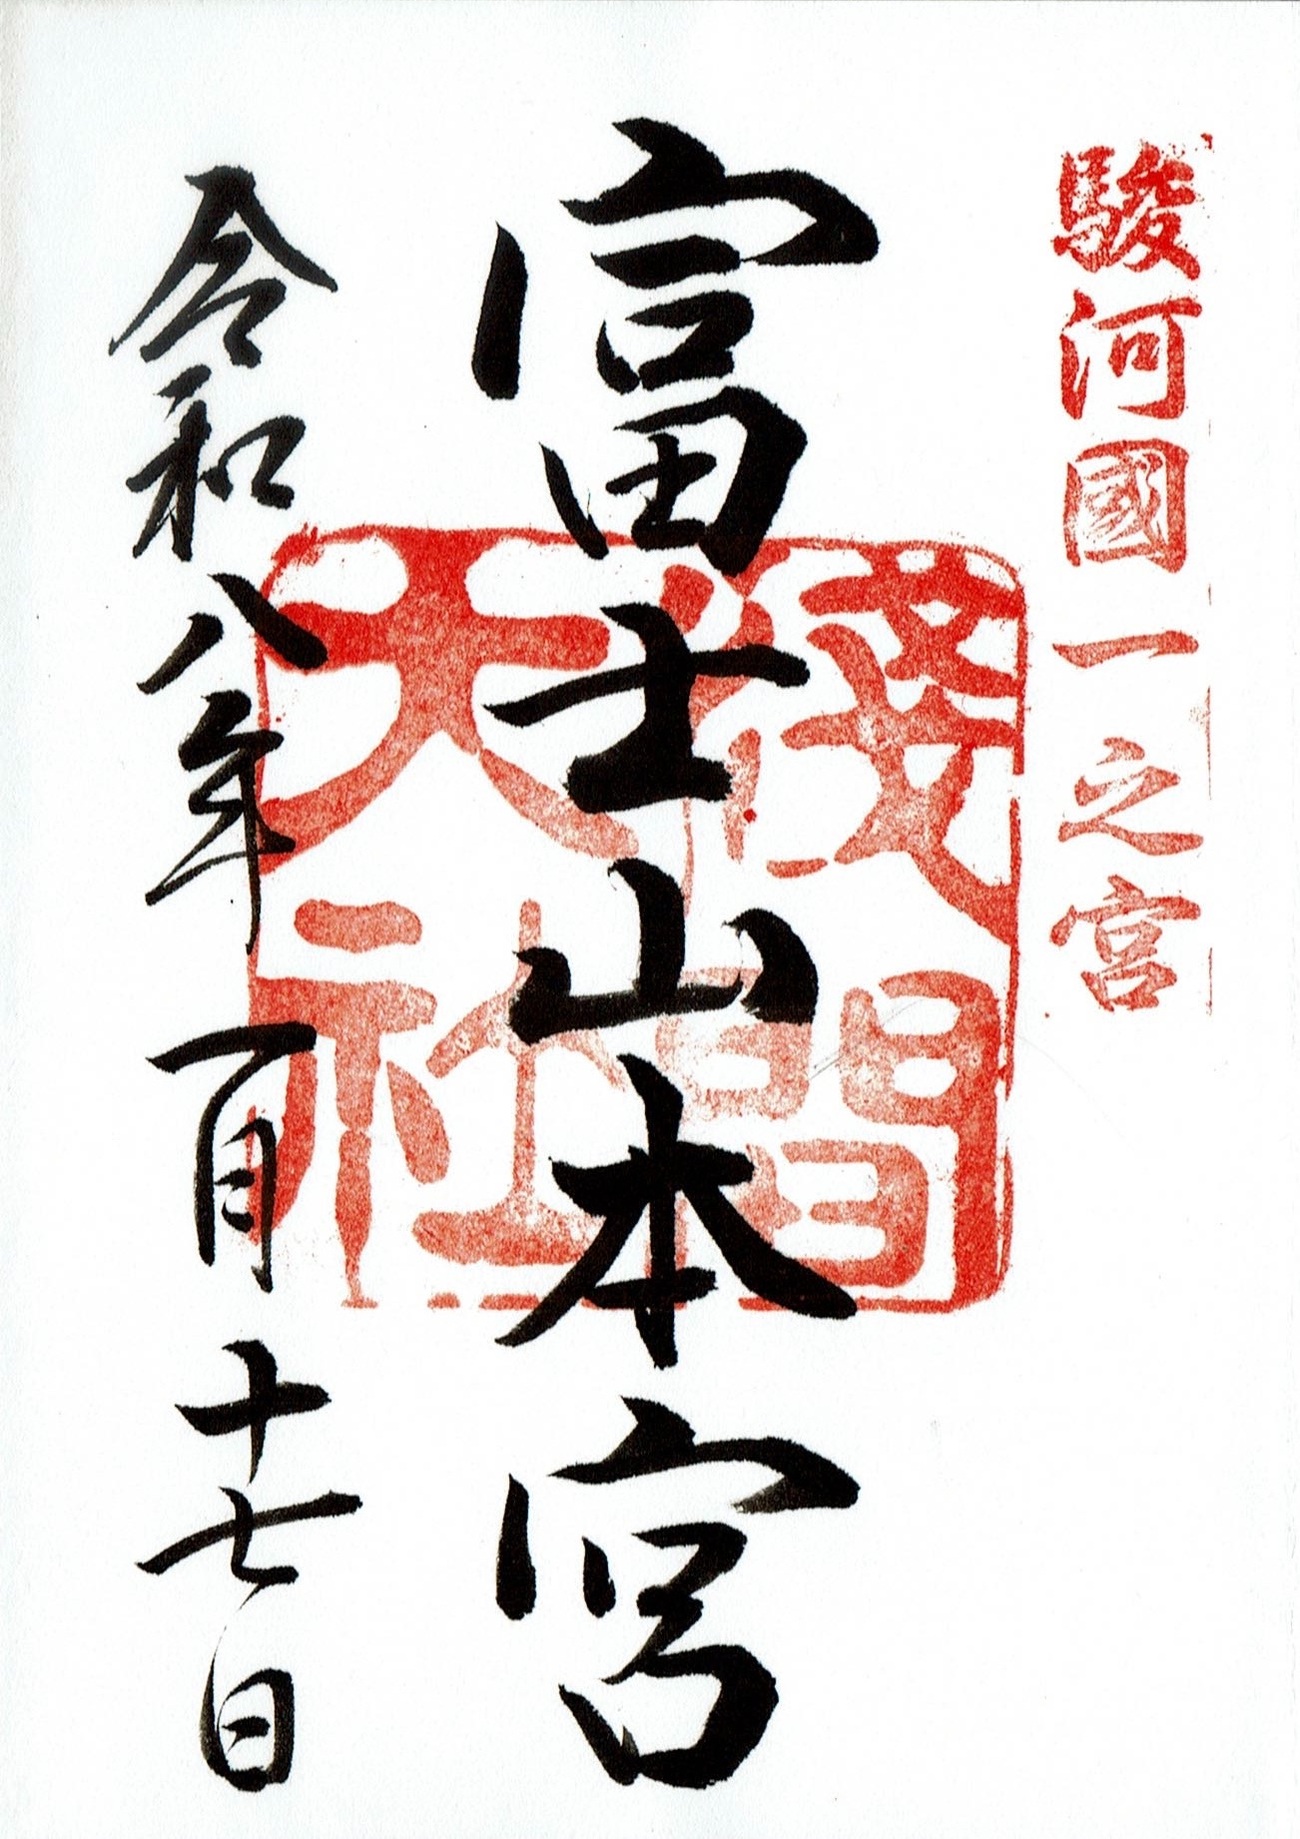 駿河國一之宮
富士山本宮
淺間
大社
令和八年一月十七日